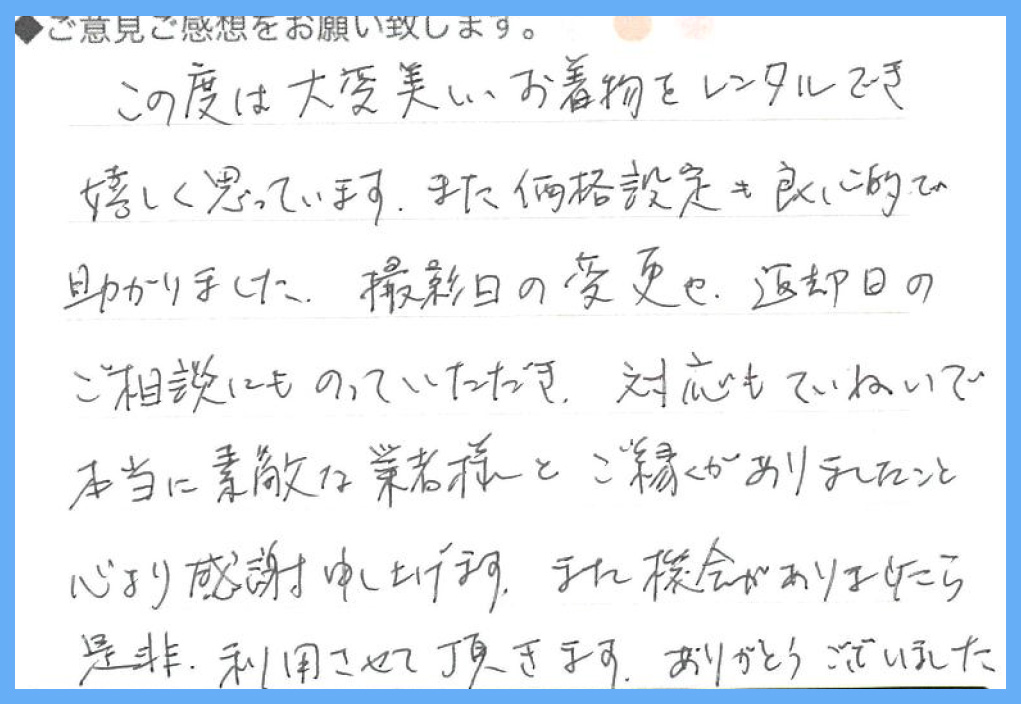 ◆ご意見ご感想をお願い致します。
この度は大変美しいお着物をレンタルでき
嬉しく思っています。また価格設定も良心的で
助かりました。撮影日の変更や、返却日の
ご相談にものっていただき、対応もていねいで
本当に素敵な業者様とご縁がありましたこと
心より感謝申し上げます。また機会がありましたら
是非、利用させて頂きます。ありがとうございました